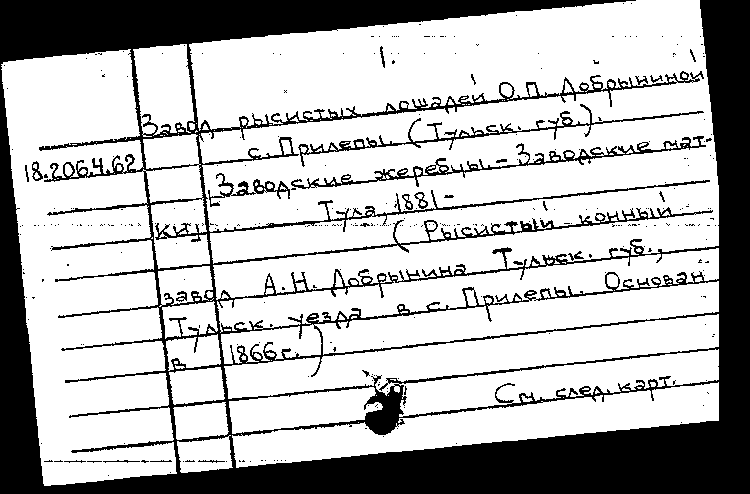 1.
Завод рысистых лошадей О.П. Добрыниной
с. Прилепы. (Тульск. губ.).
18.206.4.62.
[Заводские жеребцы. - Заводские мат-
ки]..... Тула, 1881 -
(Рысистый конный
завод А.Н. Добрынина Тульск. губ.,
Тульск. уезда в с. Прилепы. Основан
в 1866 г.).
См. след. карт.